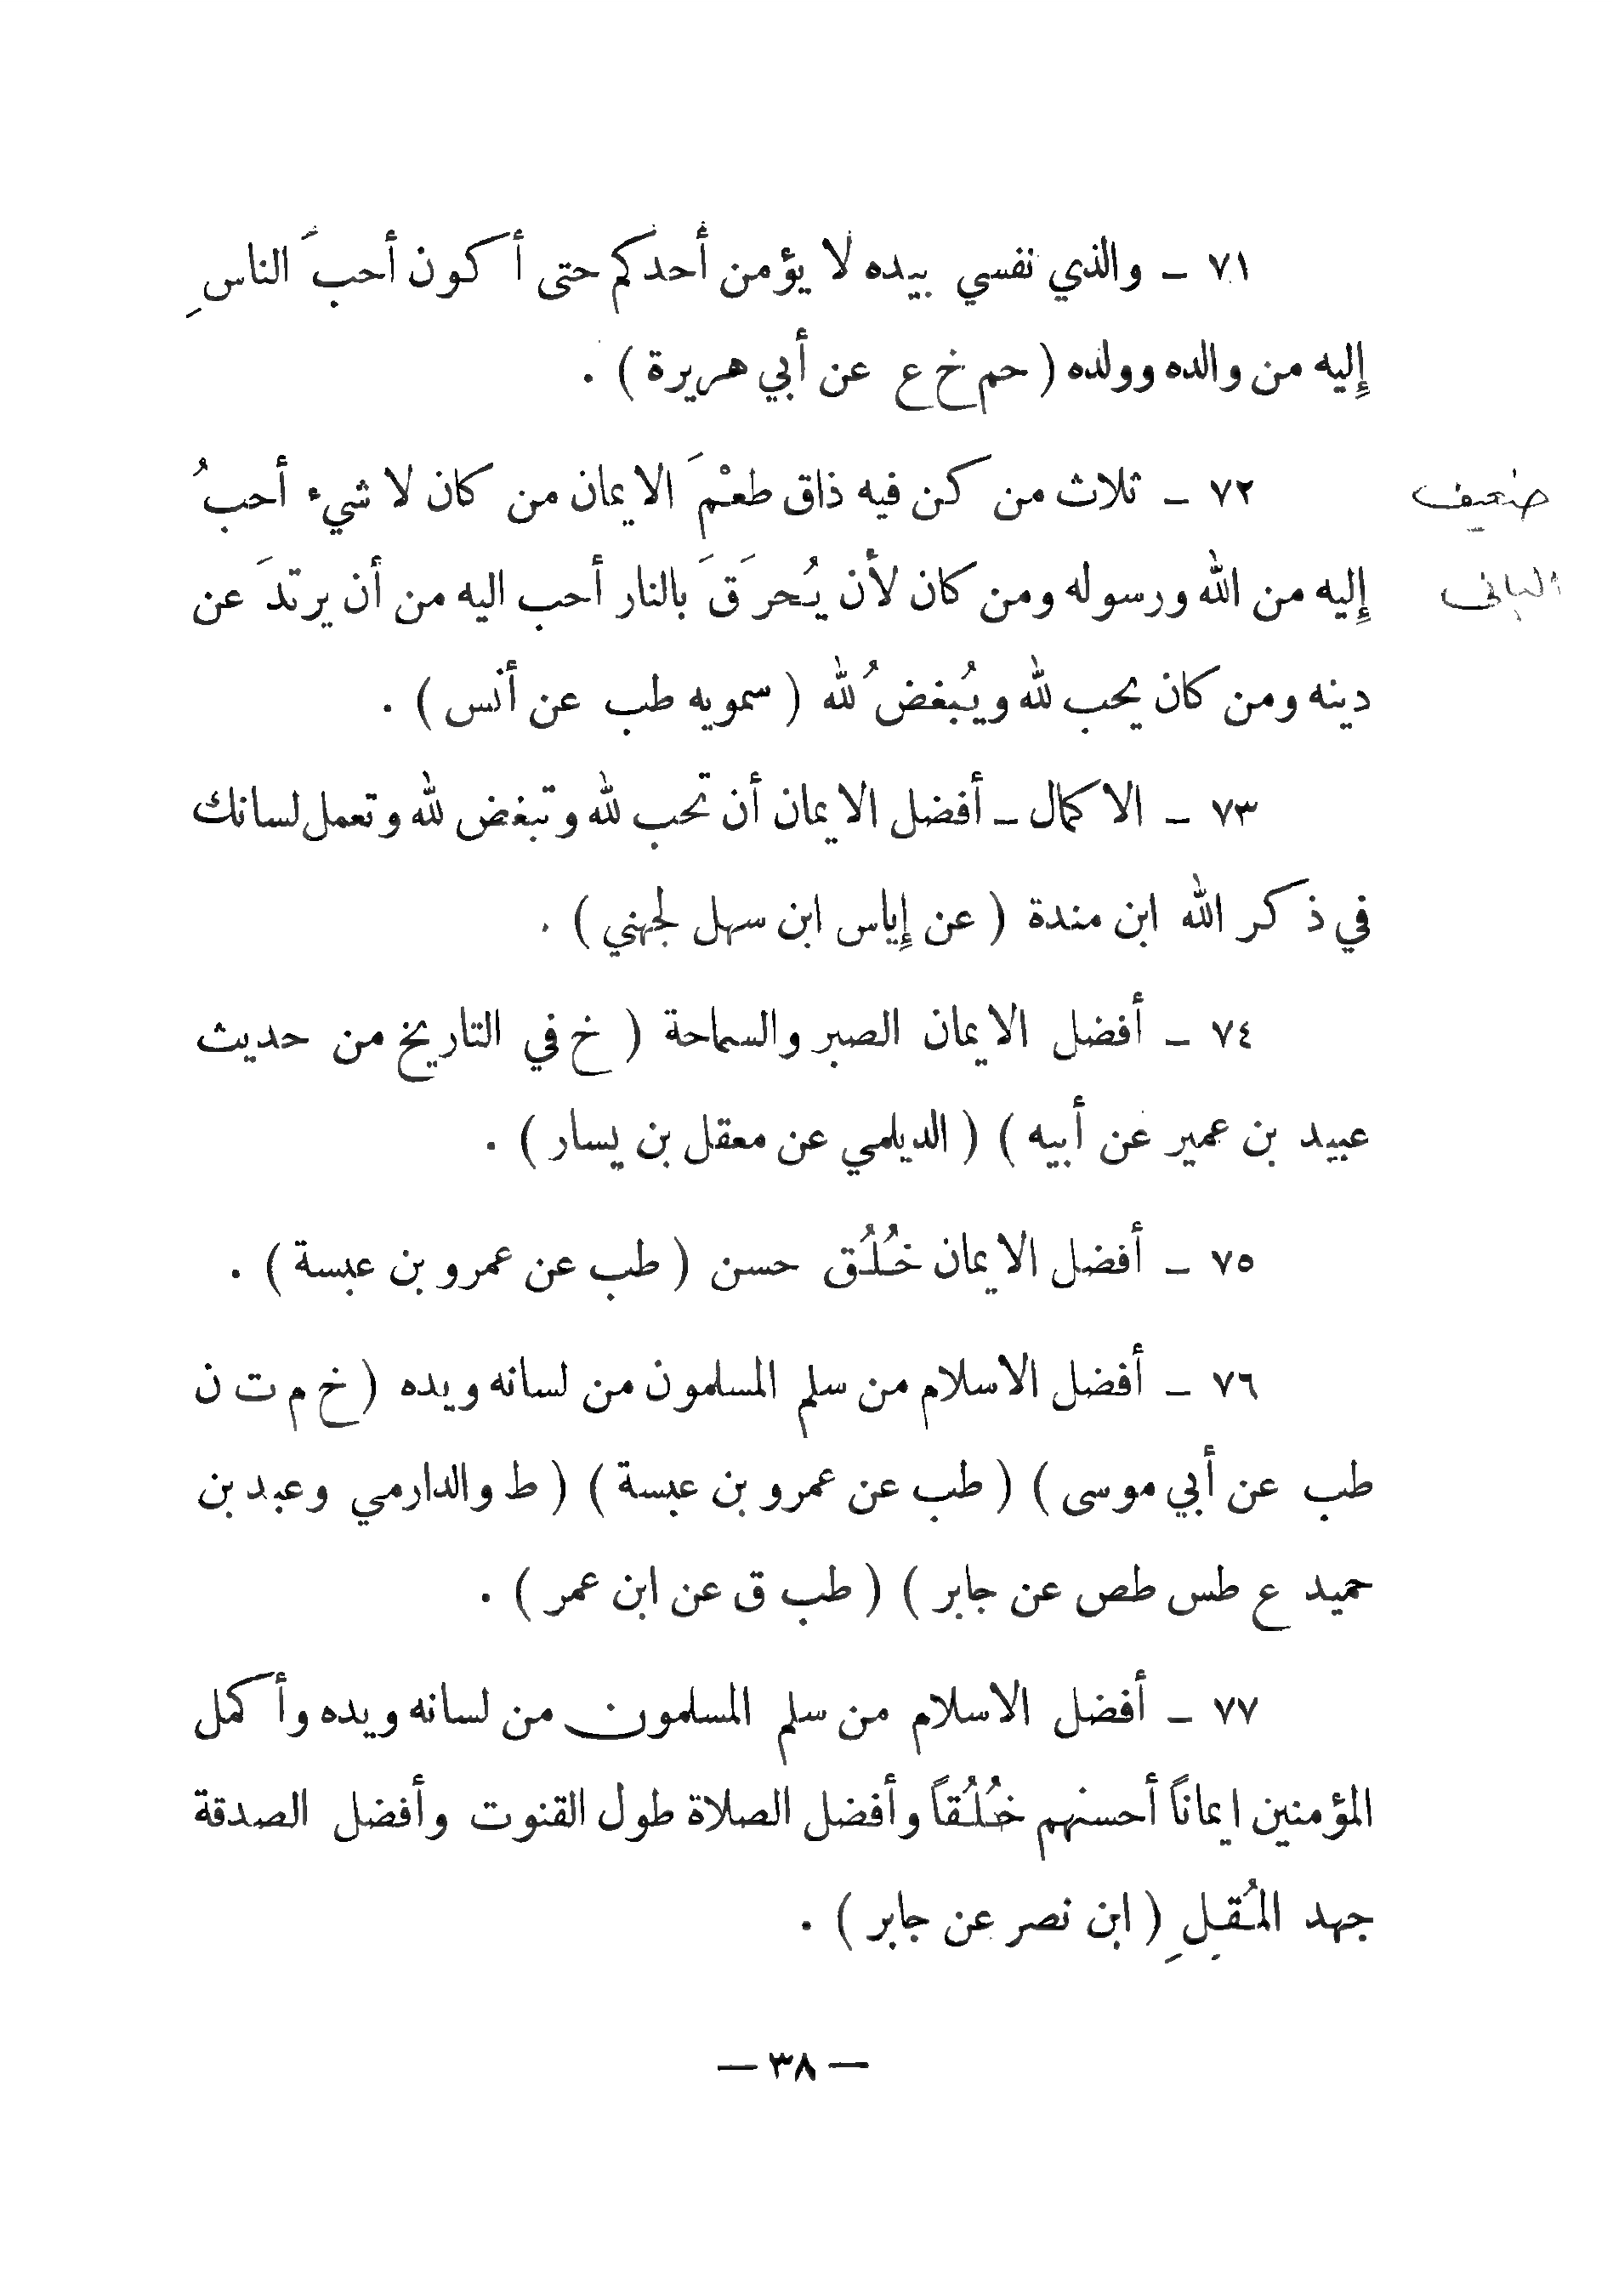 ٧١ ـ والذي نفسي بيده لا يؤمن أحدكم حتى أكون أحبَ الناسِ
إليه من والده وولده ( حم خ ع عن أبي هريرة ) .
٧٢ ـ ثلاث من كن فيه ذاق طعْمَ الايمان من كان لا شيء أحبُ
ضعيف
إليه من الله ورسوله ومن كان لأن يُحرَقَ بالنار أحب اليه من أن يرتدَ عن
البانى
دينه ومن كان يحب لله ويُبغضُ لله ( سمويه طب عن أنس ) .
٧٣ ـ الاكمال ـ أفضل الايمان أن تحب لله وتبغض لله وتعمل لسانك
في ذكر الله ابن مندة ( عن إياس ابن سهل لجهني ) .
٧٤ ـ أفضل الايمان الصبر والسماحة ( خ في التاريخ من حديث
عبيد بن عمير عن أبيه ) ( الديلمي عن معقل بن يسار ) .
٧٥ ـ أفضل الايمان خُلُق حسن ( طب عن عمرو بن عبسة ) .
٧٦ ـ أفضل الاسلام من سلم المسلمون من لسانه ويده ( خ م ت ن
طب عن أبي موسى ) ( طب عن عمرو بن عبسة ) ( ط والدارمي وعبد بن
حميد ع طس طص عن جابر ) ( طب ق عن ابن عمر ) .
٧٧ ـ أفضل الاسلام من سلم المسلمون من لسانه ويده وأكمل
المؤمنين ايماناً أحسنهم خُلُقاً وأفضل الصلاة طول القنوت وأفضل الصدقة
جهد المُقِلِ ( ابن نصر عن جابر ) .
— ٣٨ —